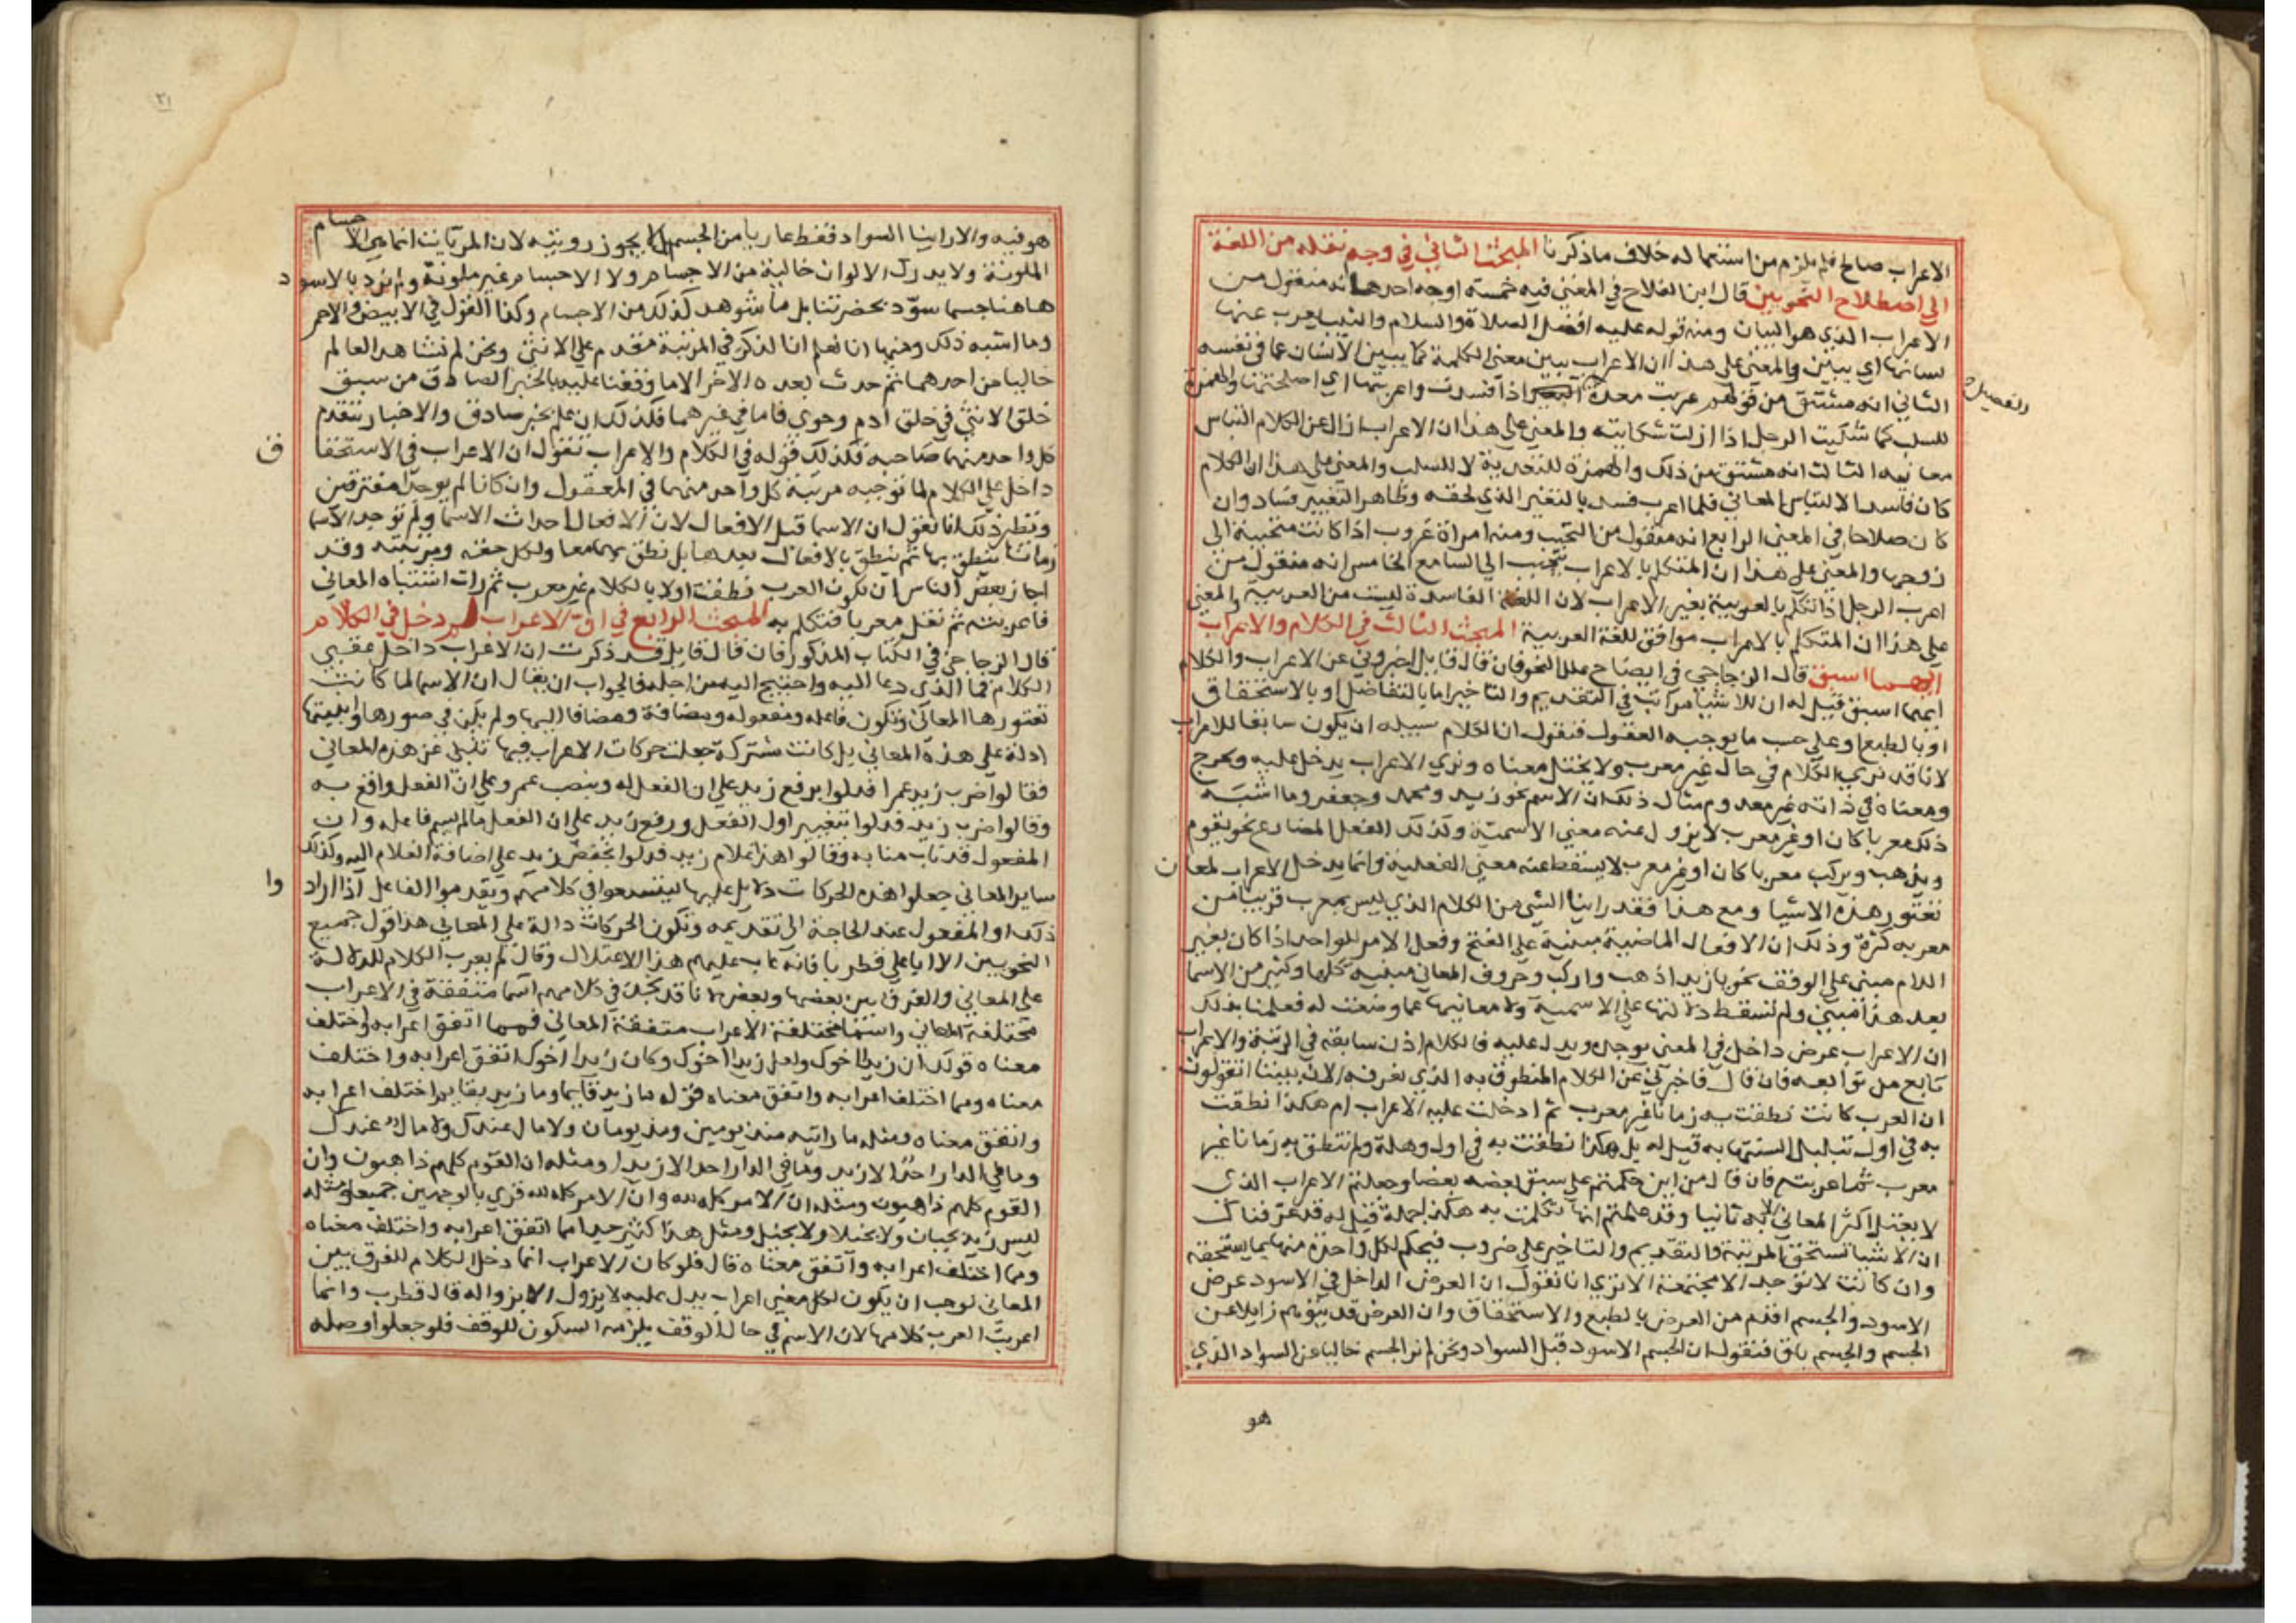 الاعراب صالح فلم يلزم من استعماله خلاف ماذكرنا المبحث الثاني في وجه نقله من اللغة
الى اصطلاح النحويين قال ابن الفلاح في المغني فيه خمسة اوجه احدها انه منقول من
الاعراب الذي هو البيان ومنه قوله عليه افضل الصلاة والسلام والثيب يعرب عنها
لسانها اي يبين والمعنى على هذا ان الاعراب يبين معنى الكلمة كما يبين الانسان عما في نفسه
الثاني انه مشتق من قولهم عربت معدة اذا فسدت واعربتها اي اصلحتها والهمزة
للسلب كما شكيت الرجل اذا ازلت شكايته والمعنى على هذا ان الاعراب ازال عن الكلام التباس
معانيه الثالث انه مشتق من ذلك والهمزة للتعدية لا للسلب والمعنى على هذا ان الكلام
كان فاسدا لالتباس المعاني فلما اعرب فسد بالتغير الذي لحقه وظاهر التغيير فساد وان
كان صلاحا في المعنى الرابع انه منقول من التحبب ومنه امراة عروب اذا كانت متحببة الى
زوجها والمعنى على هذا ان المتكلم بالاعراب يتحبب الى السامع الخامس انه منقول من
اعرب الرجل اذا تكلم بالعربية بغير الاعراب لان اللغة الفاسدة ليست من العربية والمعنى
على هذا ان المتكلم بالاعراب موافق للغة العربية المبحث الثالث في الكلام والاعراب
ايهما اسبق قال الزجاجي في ايضاح علل النحو فان قال قايل اخبروني عن الاعراب والكلام
ايهما اسبق قيل له ان للاشيا مراتب في التقديم والتاخير اما بالتفاضل او بالاستحقاق
او بالطبع او على حسب ما يوجبه المعقول فنقول ان الكلام سبيله ان يكون سابقا للاعراب
لانا قد نرى الكلام في حال غير معرب ولا يختل معناه ونرى الاعراب يدخل عليه ويخرج
ومعناه في ذاته غير معدوم مثال ذلك ان الاسم نحو زيد ومحمد وجعفر وما اشبه
ذلك معربا كان او غير معرب لا يزول عنه معنى الاسمية وكذلك الفعل المضارع نحو يقوم
ويذهب ويركب معربا كان او غير معرب لا يسقط عنه معنى الفعلية وانما يدخل الاعراب لمعان
تعتور هذه الاشيا ومع هذا فقد راينا الشي من الكلام الذي ليس بمعرب قريبا من
معربه كثرة وذلك ان الافعال الماضية مبنية على الفتح وفعل الامر للواحد اذا كان بغير
اللام مبنى على الوقف نحو يا زيد اذهب واركب وحروف المعاني مبنية كلها وكثير من الاسما
بعد هذا مبني ولم تسقط دلالتها على الاسمية ولا معانيها عما وضعت له فعلمنا بذلك
ان الاعراب عرض داخل في المعنى يوجده ويدل عليه فالكلام اذن سابقه في الرتبة والاعراب
تابع من توابعه فان قال فاخبرني عن الكلام المنطوق به الذي نعرفه الان بيننا اتقولون
ان العرب كانت نطقت به زمانا غير معرب ثم ادخلت عليه الاعراب ام هكذا نطقت
به في اول تبلبل السنتها به قيل له بل هكذا نطقت به في اول وهلة ولم تنطق به زمانا غير
معرب ثم اعربته فان قال من اين حكمتم على سبق بعضه بعضا وجعلتم الاعراب الذي
لا يعقل اكثر المعاني الا به ثانيا وقد علمتم انها تكلمت به هكذا جملة قيل له قد عرفناك
ان الاشيا تستحق المرتبة والتقديم والتاخير على ضروب فيحكم لكل واحدة منها بما يستحقه
وان كانت لا توجد الا مجتمعة الا ترى انا نقول ان العرض الداخل في الاسود عرض
الاسود والجسم اقدم من العرض بالطبع والاستحقاق وان العرض قد يتوهم زايلا عن
الجسم والجسم باق فنقول ان الجسم الاسود قبل السواد ونحن لم نر الجسم خاليا عن السواد الذي
هو
٢١
هو فيه ولا راينا السواد فقط عاريا من الجسم بل لا يجوز رويته لان المرئيات انما هي الاجسام
الملونة ولا يدرك الالوان خالية من الاجسام ولا الاجسام غير ملونة ولم نرد بالاسود
هاهنا جسما سود بحضرتنا بل ما شوهد كذلك من الاجسام وكذا القول في الابيض والاحمر
وما اشبه ذلك ومنها انا نعلم ان الذكر في المرتبة مقدم على الانثى ونحن لم نشاهد العالم
خاليا من احدهما ثم حدث بعده الاخر الا ما وقفنا عليه بالخبر الصادق من سبق
خلق الانثى في خلق ادم وحوي فاما في غيرهما فكذلك ان علم بخبر صادق والاخبار يتقدم
كل واحد منهما صاحبه فكذلك قوله في الكلام والاعراب نقول ان الاعراب في الاستحقا
ق
داخل على الكلام لما توجبه مرتبة كل واحد منهما في المعقول وان كانا لم يوجدا مفترقين
ونظير ذلك انا نقول ان الاسما قبل الافعال لان الافعال احداث الاسما ولم توجد الاسما
زمانا ينطق بها ثم ينطق بالافعال بعدها بل نطق بهما معا ولكل حقه ومرتبته وقد
اجاز بعض الناس ان تكون العرب نطقت اولا بالكلام غير معرب ثم رات اشتباه المعاني
فاعربته ثم نقل معربا فتكلم به المبحث الرابع في ان الاعراب لم دخل في الكلام
قال الزجاجي في الكتاب المذكور فان قال قايل قد ذكرت ان الاعراب داخل عقيب
الكلام فما الذي دعا اليه واحتيج اليه من اجله فالجواب ان يقال ان الاسما لما كانت
تعتورها المعاني وتكون فاعله ومفعوله ومضافة ومضافا اليها ولم يكن في صورها وابنيتها
ادلة على هذه المعاني بل كانت مشتركة جعلت حركات الاعراب فيها تنبئ عن هذه المعاني
فقالوا ضرب زيد عمرا فدلوا برفع زيد على ان الفعل له وبنصب عمرو على ان الفعل واقع به
وقالوا ضرب زيد فدلوا بتغيير اول الفعل ورفع زيد على ان الفعل مالم يسم فاعله وان
المفعول قد ناب منابه وقالوا هذا غلام زيد فدلوا بخفض زيد على اضافة الغلام اليه وكذلك
ساير المعاني جعلوا هذه الحركات دلايل عليها ليتسعوا في كلامهم ويقدموا الفاعل اذا اراد
وا
ذلك او المفعول عند الحاجة الى تقديمه وتكون الحركات دالة على المعاني هذا قول جميع
النحويين الا ابا علي قطربا فانه عاب عليهم هذا الاعتلال وقال لم يعرب الكلام للدلالة
على المعاني والفرق بين بعضها وبعض لانا قد نجد في كلامهم اسما متفقة في الاعراب
مختلفة المعاني واسما مختلفة الاعراب متفقة المعاني فمما اتفق اعرابه واختلف
معناه قولك ان زيدا اخوك ولعل زيدا اخوك وكان زيدا اخوك اتفق اعرابه واختلف
معناه ومما اختلف اعرابه واتفق معناه قولك ما زيد قايما وما زيد بقايم اختلف اعرابه
واتفق معناه ومثله ما رايته منذ يومين ومنذ يومان ولا مال عندك ولا مال عندك
وما في الدار احد الا زيد وما في الدار احد الا زيدا ومثله ان القوم كلهم ذاهبون وان
القوم كلهم ذاهبون ومثله ان الامر كله لله وان الامر كله لله قري بالوجهين جميعا ومثله
ليس زيد بجبان ولا بخيلا ولا بخيل ومثل هذا كثير جدا مما اتفق اعرابه واختلف معناه
ومما اختلف اعرابه واتفق معناه قال فلو كان الاعراب انما دخل الكلام للفرق بين
المعاني لوجب ان يكون لكل معنى اعراب يدل عليه لا يزول الا بزواله قال قطرب وانما
اعربت العرب كلامها لان الاسم في حال الوقف يلزمه السكون للوقف فلو جعلوا وصله